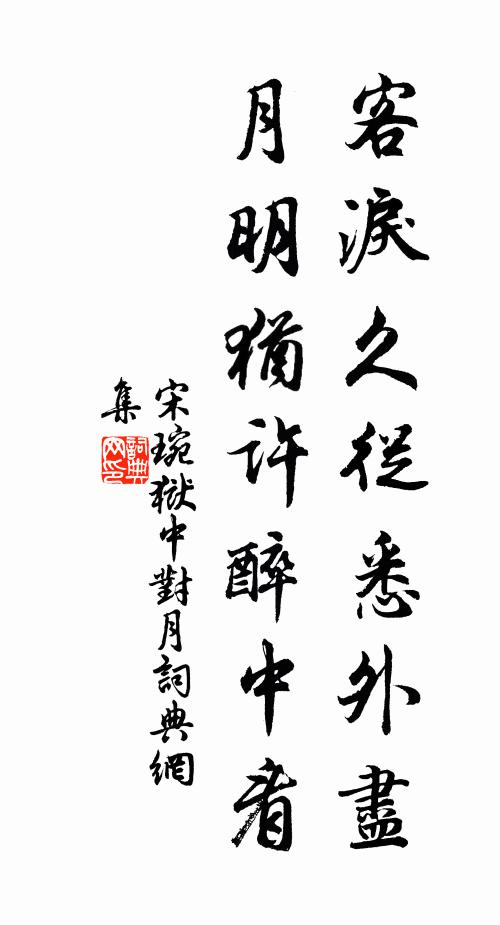 客淚久從悉外盡
月明猶許醉中看
宋琬獄中對月詞典網
集
詞典
网印